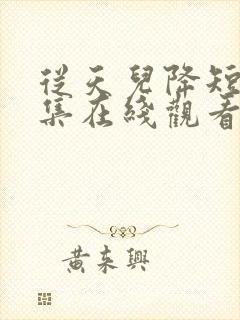 從天兒降短
集在綫觀看
黃來興